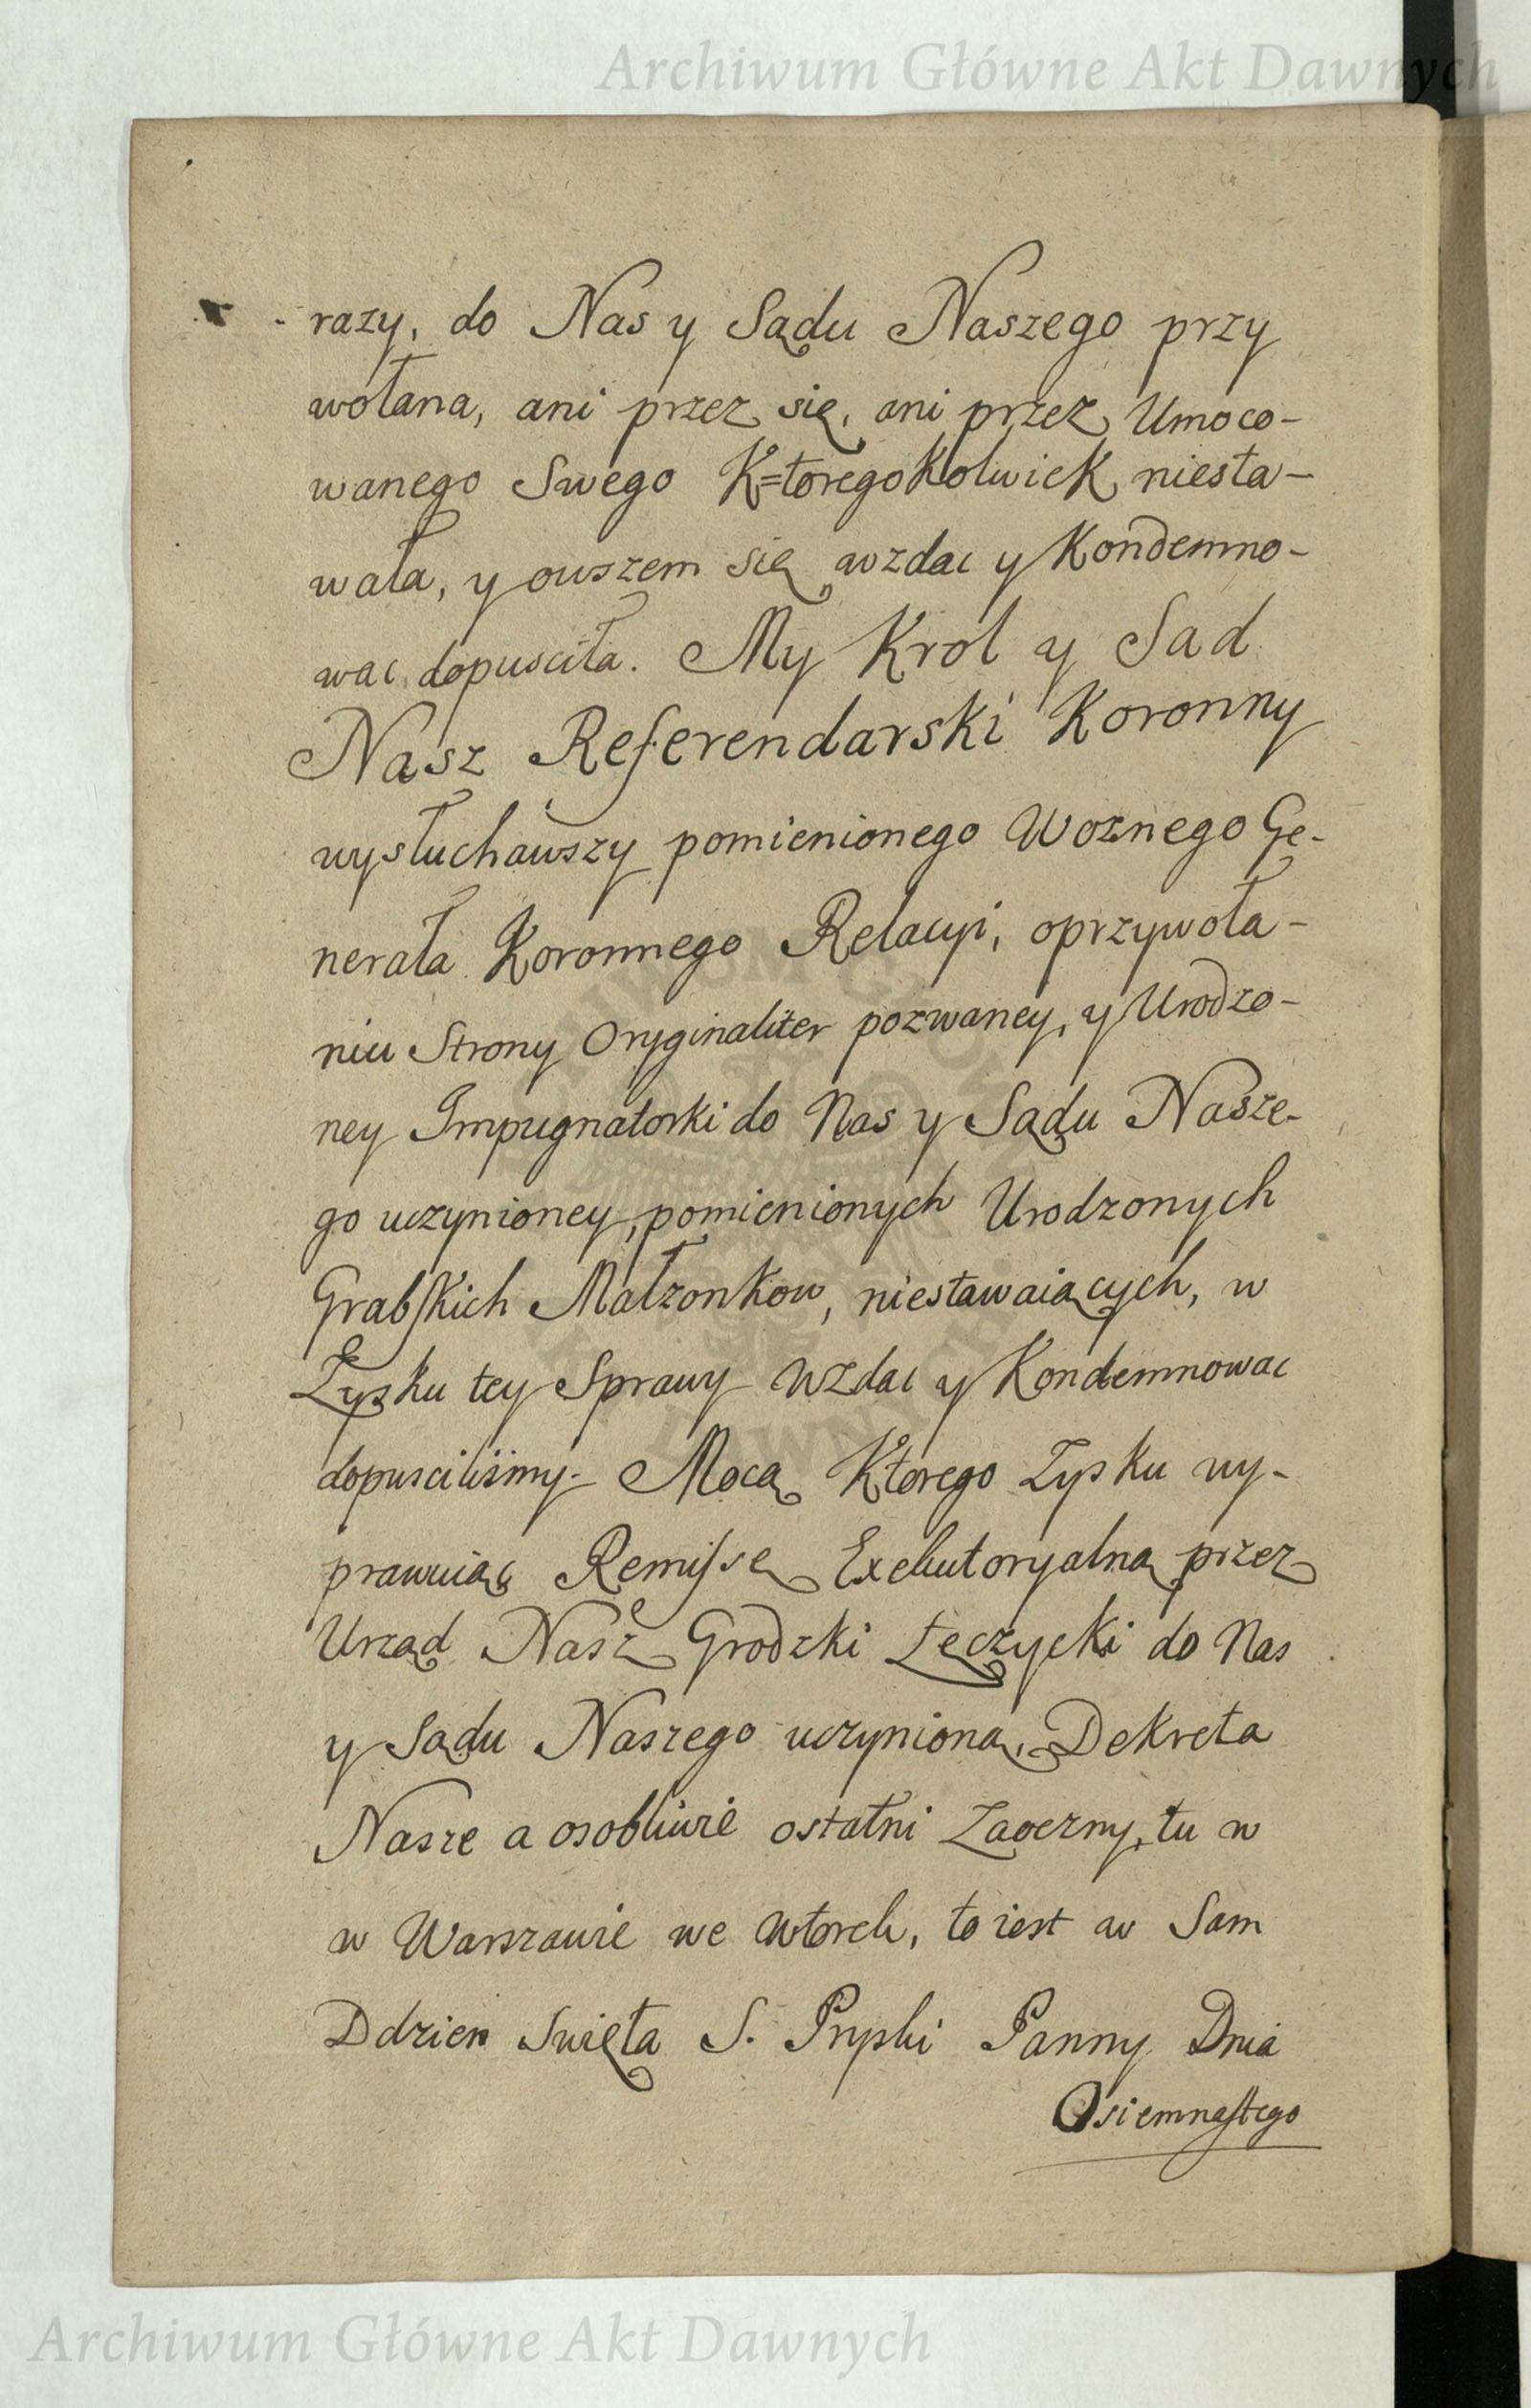 Archiwum Główne Akt Dawnych
razy, do Nas y Sądu Naszego przy
wołana, ani przez się, ani przez Umoco-
wanego Swego K=toregoKolwiek niesta-
wała, y owszem się wzdac y Kondemno-
wac dopusciła. My Krol y Sad
Nasz Referendarski Koronny
wysłuchawszy pomienionego Woznego Ge-
nerała Koronnego Relacyi, oprzywoła-
niu Strony Oryginaliter pozwaney, y Urodzo-
ney Impugnatorki do Nas y Sądu Nasze-
go uczynioney, pomienionych Urodzonych
Grabskich Małzonkow, niestawaiących, w
Zysku tey Sprawy Wzdac y Kondemnowac
dopuscilismy. Mocą Ktorego Zysku wy-
prawuiąc Remissę Exekutoryalną przez
Urząd Nasz Grodzki Łęczycki do Nas
y Sądu Naszego uczynioną, Dekreta
Nasze a osobliwie ostatni Zaoczny, tu w
w Warszawie we Wtorek, to iest w Sam
Ddzien Swięta S. Pryski Panny Dnia
Osiemnastego
Archiwum Główne Akt Dawnych